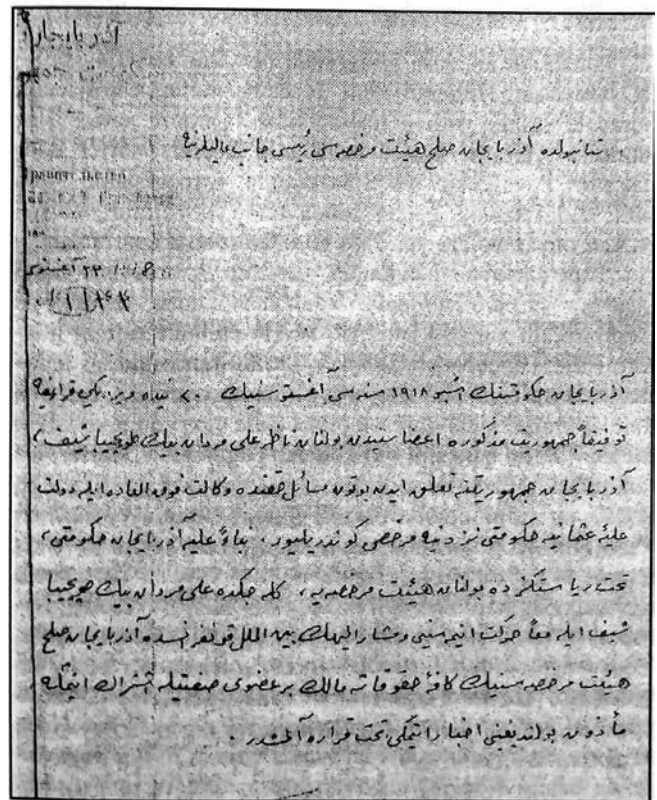 آذربایجان
استانبولده آذربایجان صلح هیئت مرخصه سی رئیسی جانب عالیلرینه
правительство
1918 ۲۳ آغستوس
آذربایجان حکومتنك اشبو ۱۹۱۸ سنه سی آغستوسنیك ۲۰ نیده ویردیكی قرارینه
توفیقاً جمهوریت مذكوره اعضا سنیدن بولنان ناظر علی مردان بیك طوپچیباشیف ،
آذربایجان جمهوریتنه تعلق ایدن بوتون مسائل حقنده وكالت فوق العاده ایله دولت
علیۀ عثمانیه حكومتی نزدنیه مرخصی كوندریلیور . بناءً علیه آذربایجان حكومتی ،
تحت ریاستكزده بولنان هیئت مرخصه یه ، كله جكده علی مردان بیك طوپچیبا
شیف ایله معاً حركت ایتمسنی ومشارالیهك بین الملل قونفرانسده آذربایجان صلح
هیئت مرخصه سنیك كافۀ حقوقاته مالك بر عضوی صفتیله اشتراك ایتمكه
مأذون بولندیغینی اخبار ایتمكی تحت قراره آلمشدر .